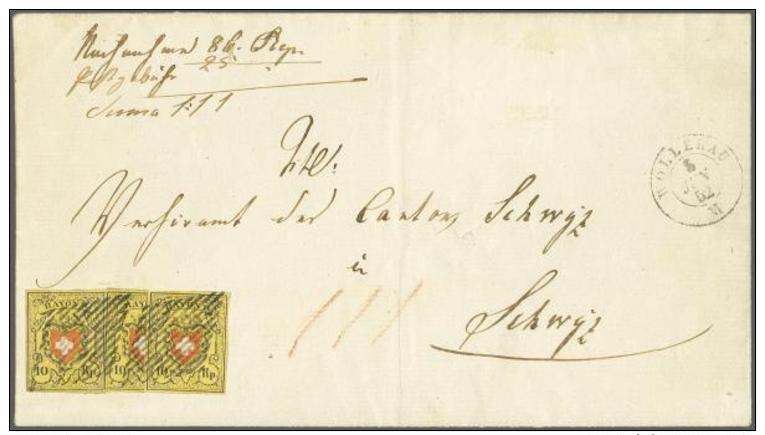 Nachnahme 86. Rp.
Postgebühr 25.
Suma 1:11
Tit:
Verhöramt des Cantons Schwyz
in
Schwyz
WOLLERAU
5
52
M
RAYON II
10 Rp.
10
10 Rp.